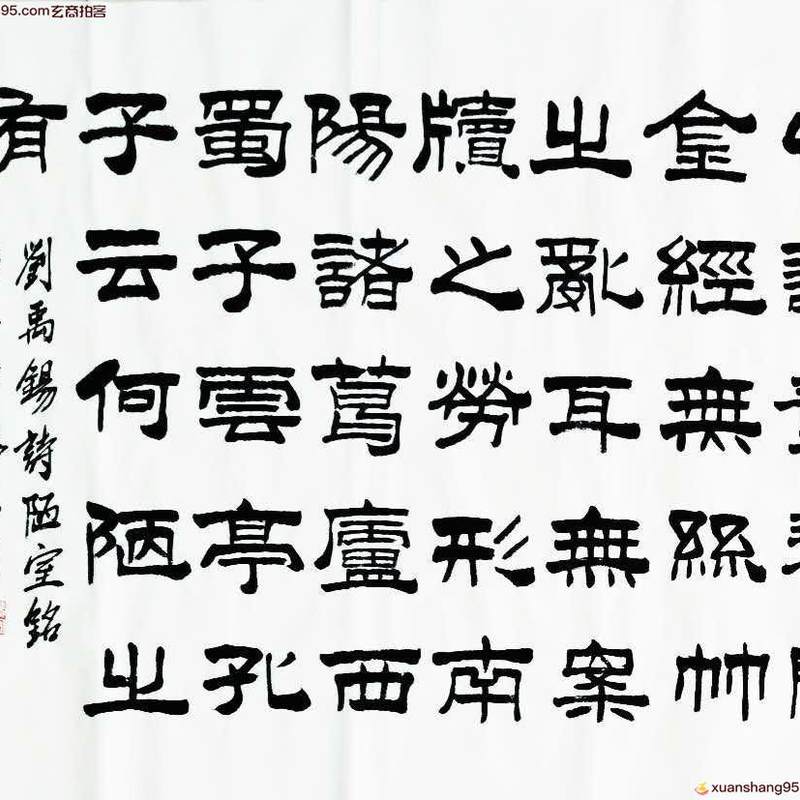 95.com玄商拍客
金經無絲竹
之亂耳無案
牘之勞形南
陽諸葛廬西
蜀子雲亭孔
子云何陋之
有
劉禹錫詩陋室銘
xuanshang95